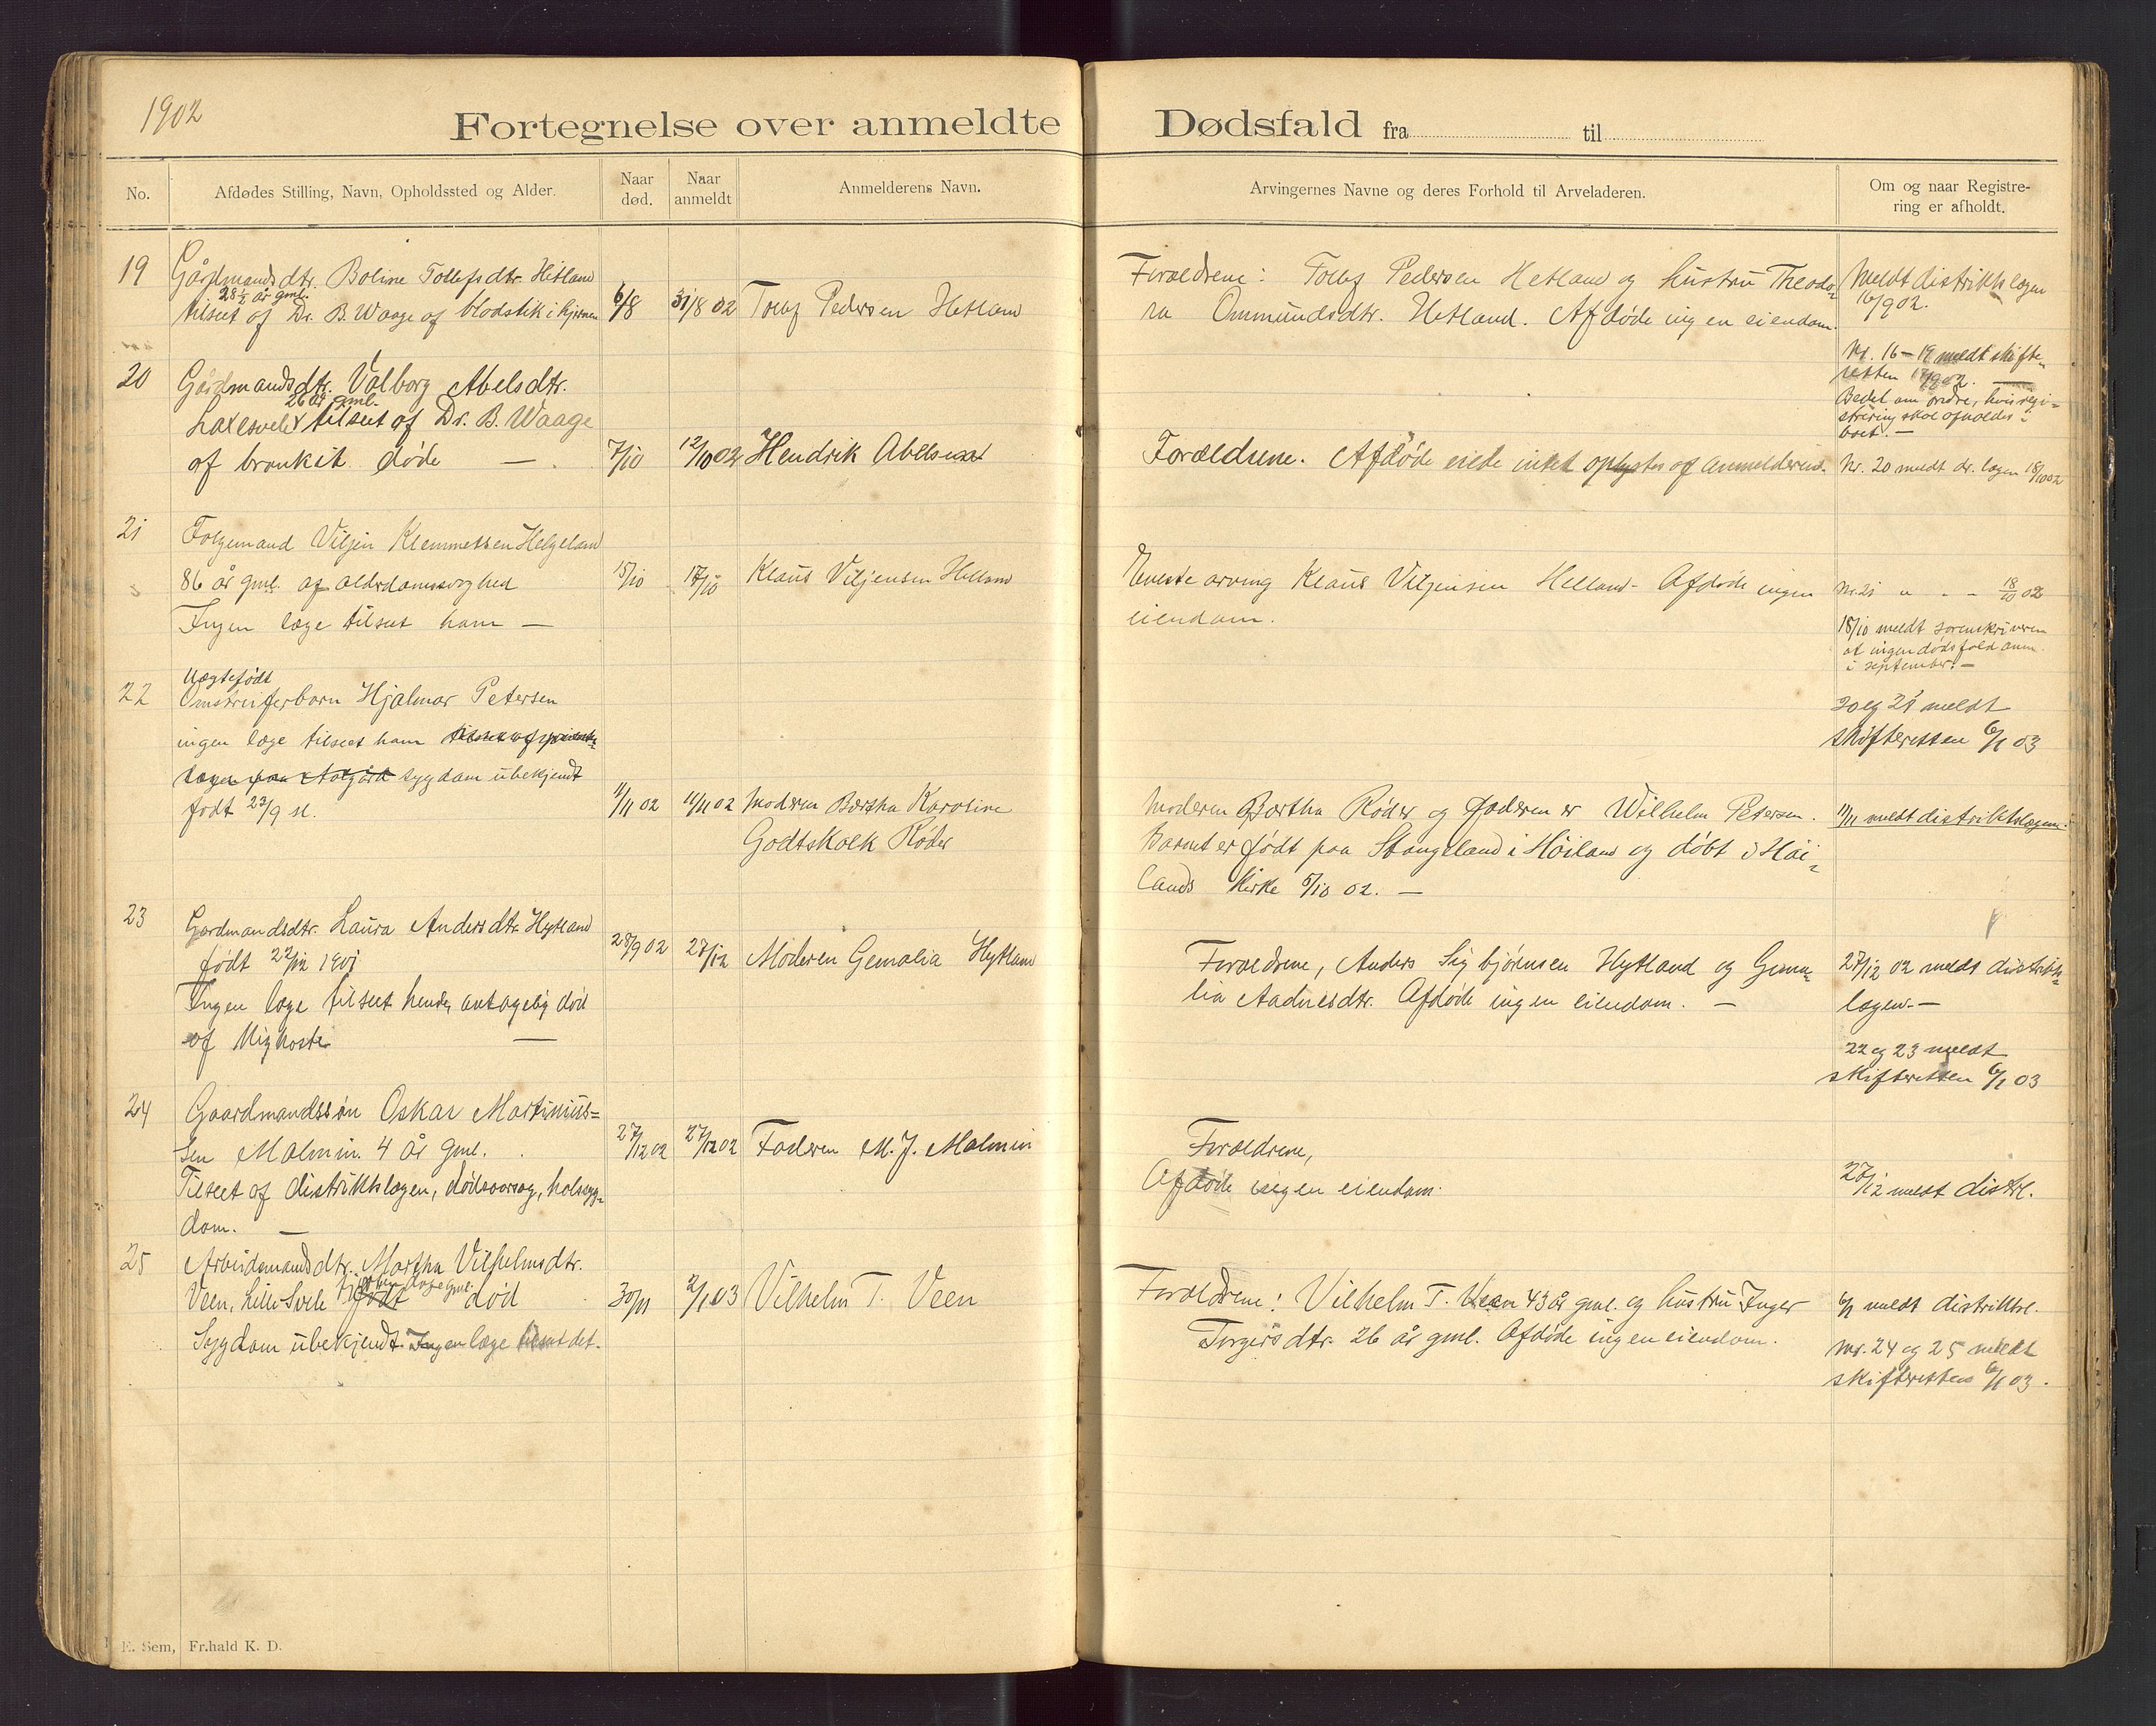 1902
Fortegnelse over anmeldte Dødsfald fra til
No.
Afdødes Stilling, Navn, Opholdssted og Alder.
Naar død.
Naar anmeldt
Anmelderens Navn.
Arvingernes Navne og deres Forhold til Arveladeren.
Om og naar Registrering er afholdt.
19
Gårdmandsdtr. Boline Tollefsdtr. Hetland
28½ år gml.
tilseet af Dr. B. Waage af blodstik i hjernen
6/8
31/8 02
Tollef Pedersen Hetland
Forældrene: Tollef Pedersen Hetland og hustru Theodo-
ra Ommundsdtr. Hetland. Afdøde ingen eiendom.
Meldt distriktslægen
16/9 02.
Nr. 16-19 meldt skifte-
retten 17/9 02.
Bedet om ordre, hvis regi-
strering skal afholdes i
boet. —
20
Gårdmandsdtr. Valborg Abelsdtr.
26 år gml.
Laxesvele tilseet af Dr. B. Waage
af bronkit døde —
7/10
12/10 02
Hendrik Abelsen
Forældrene. Afdøde eiede intet oplystes af anmelderen.
Nr. 20 meldt dr. lægen 18/10 02
21
Folgemand Viljen Klemmetsen Helgeland
86 år gml. af alderdomssvaghed
Ingen læge tilseet ham —
15/10
17/10
Klaus Viljensen Helland
Eneste arving Klaus Viljensen Helland. Afdøde ingen
eiendom.
Nr. 21 " - - 18/10 02
18/10 meldt sorenskriveren
at ingen dødsfald anm.
i september. —
20 og 21 meldt
skifteretten 6/1 03
22
Uægtefødt
Omstreiferbarn Hjalmar Petersen
ingen læge tilseet ham tilseet af
lægen paa Aalgård sygdom ubekjendt
født 23/9 sl.
11/11 02
11/11 02
Moderen Bertha Karoline
Godtskalk Røder
Moderen Bertha Røder og faderen er Wilhelm Petersen.
Barnet er født paa Stangeland i Höiland og döbt i Höi-
lands kirke 5/10 02. —
11/11 meldt distriktslægen.
23
Gardmandsdtr. Laura Andersdtr. Hytland
født 22/12 1901
Ingen læge tilseet hende, antagelig død
af kighoste —
28/9 02
27/12
Moderen Gemalia Hytland
Forældrene, Anders Sigbjørnsen Hytland og Gema-
lia Aadnesdtr. Afdøde ingen eiendom. —
27/12 02 meldt distrikts-
lægen. —
22 og 23 meldt
skifteretten 6/1 03
24
Gaardmandssøn Oskar Martinius-
sen Malmin. 4 år gml.
Tilseet af distriktslægen, dødsaarsag, halssyg-
dom. —
27/12 02
27/12 02
Faderen M. J. Malmin
Forældrene,
Afdøde ingen eiendom.
28/12 meldt distrl.
25
Arbeidsmandsdtr. Martha Vilhelmsdtr.
Veen, Lille Svele født død
Sygdom ubekjendt. Ingen læge tilseet det.
30/11
2/1 03
Vilhelm T. Veen
Forældrene: Vilhelm T. Veen 43 år gml. og hustru Inger
Torgersdtr. 26 år gml. Afdøde ingen eiendom.
6/1 meldt distriktsl.
Nr. 24 og 25 meldt
skifteretten 6/1 03.
E. Sem, Fr.hald K. D.